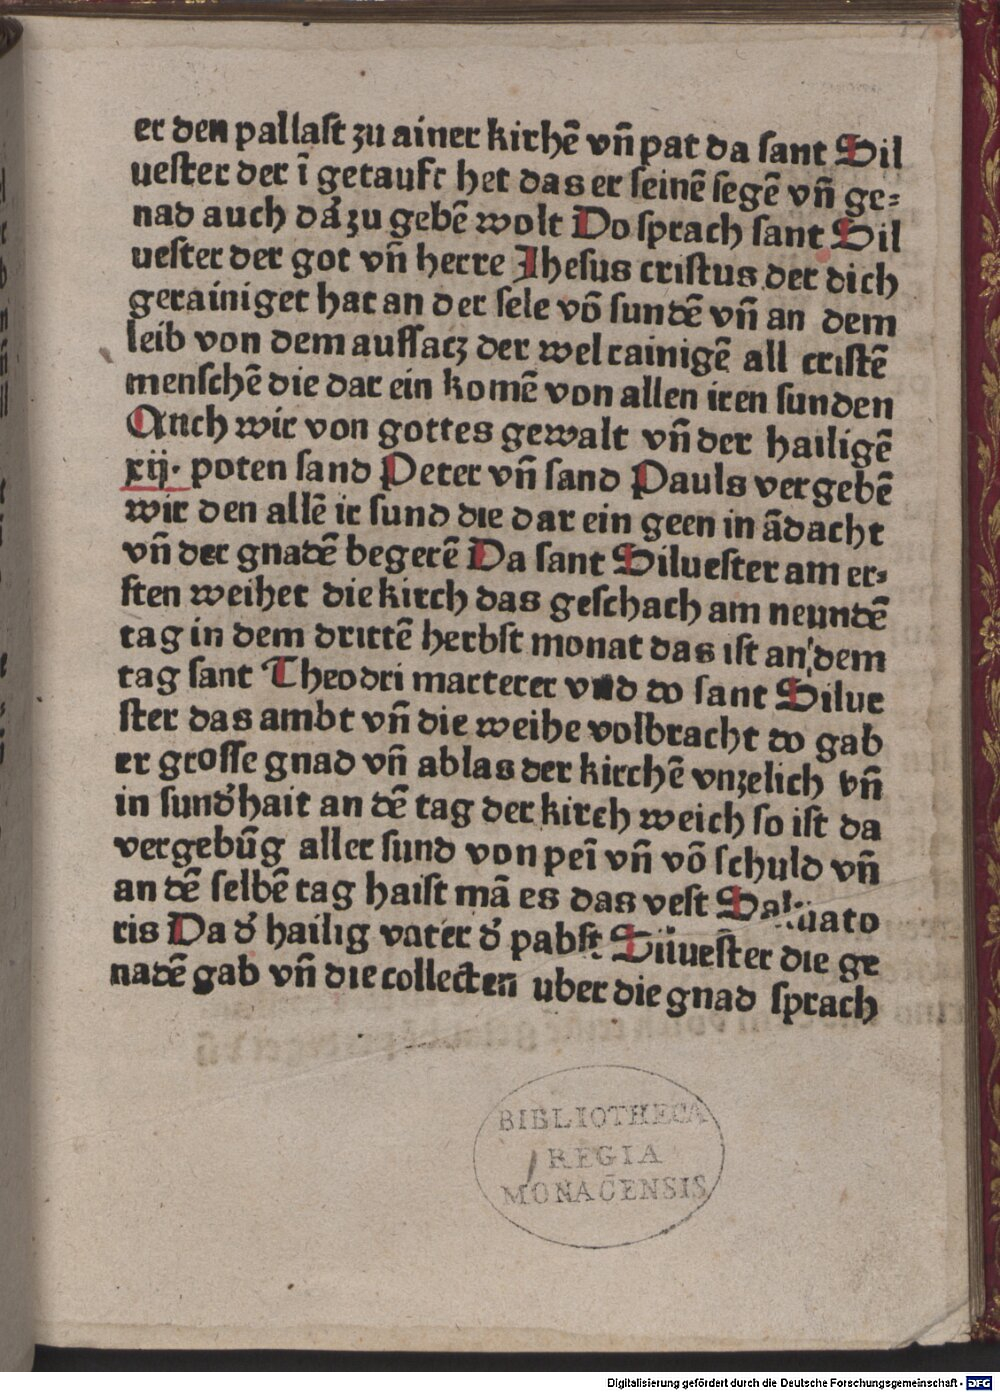 er den pallast zu ainer kirhē vn̄ pat da sant Sil
uester der ī getauft het das er seinē segē vn̄ ge⸗
nad auch dazu gebē wolt Do sprach sant Sil
uester der got vn̄ herre Jhesus cristus der dich
gerainiget hat an der sele vō sundē vn̄ an dem
leib von dem aussacz der wel rainigē all cristē
menschē die dar ein komē von allen iren sunden
Auch wir von gottes gewalt vn̄ der hailigē
xij. poten sand Peter vn̄ sand Pauls vergebē
wir den allē ir sund die dar ein geen in ādacht
vn̄ der gnadē begerē Da sant Siluester am er⸗
sten weihet die kirch das geschach am neundē
tag in dem drittē herbst monat das ist an dem
tag sant Theodri marterer vnd do sant Silue
ster das ambt vn̄ die weihe volbracht do gab
er grosse gnad vn̄ ablas der kirchē vnzelich vn̄
in sund̓hait an dē tag der kirch weich so ist da
vergebūg aller sund von peī vn̄ vō schuld vn̄
an dē selbē tag haist mā es das vest Saluato
ris Da d̓ hailig vater d̓ pabst Siluester die ge
nadē gab vn̄ die collecten̄ uber die gnad sprach
BIBLIOTHECA
REGIA
MONACENSIS
Digitalisierung gefördert durch die Deutsche Forschungsgemeinschaft - DFG